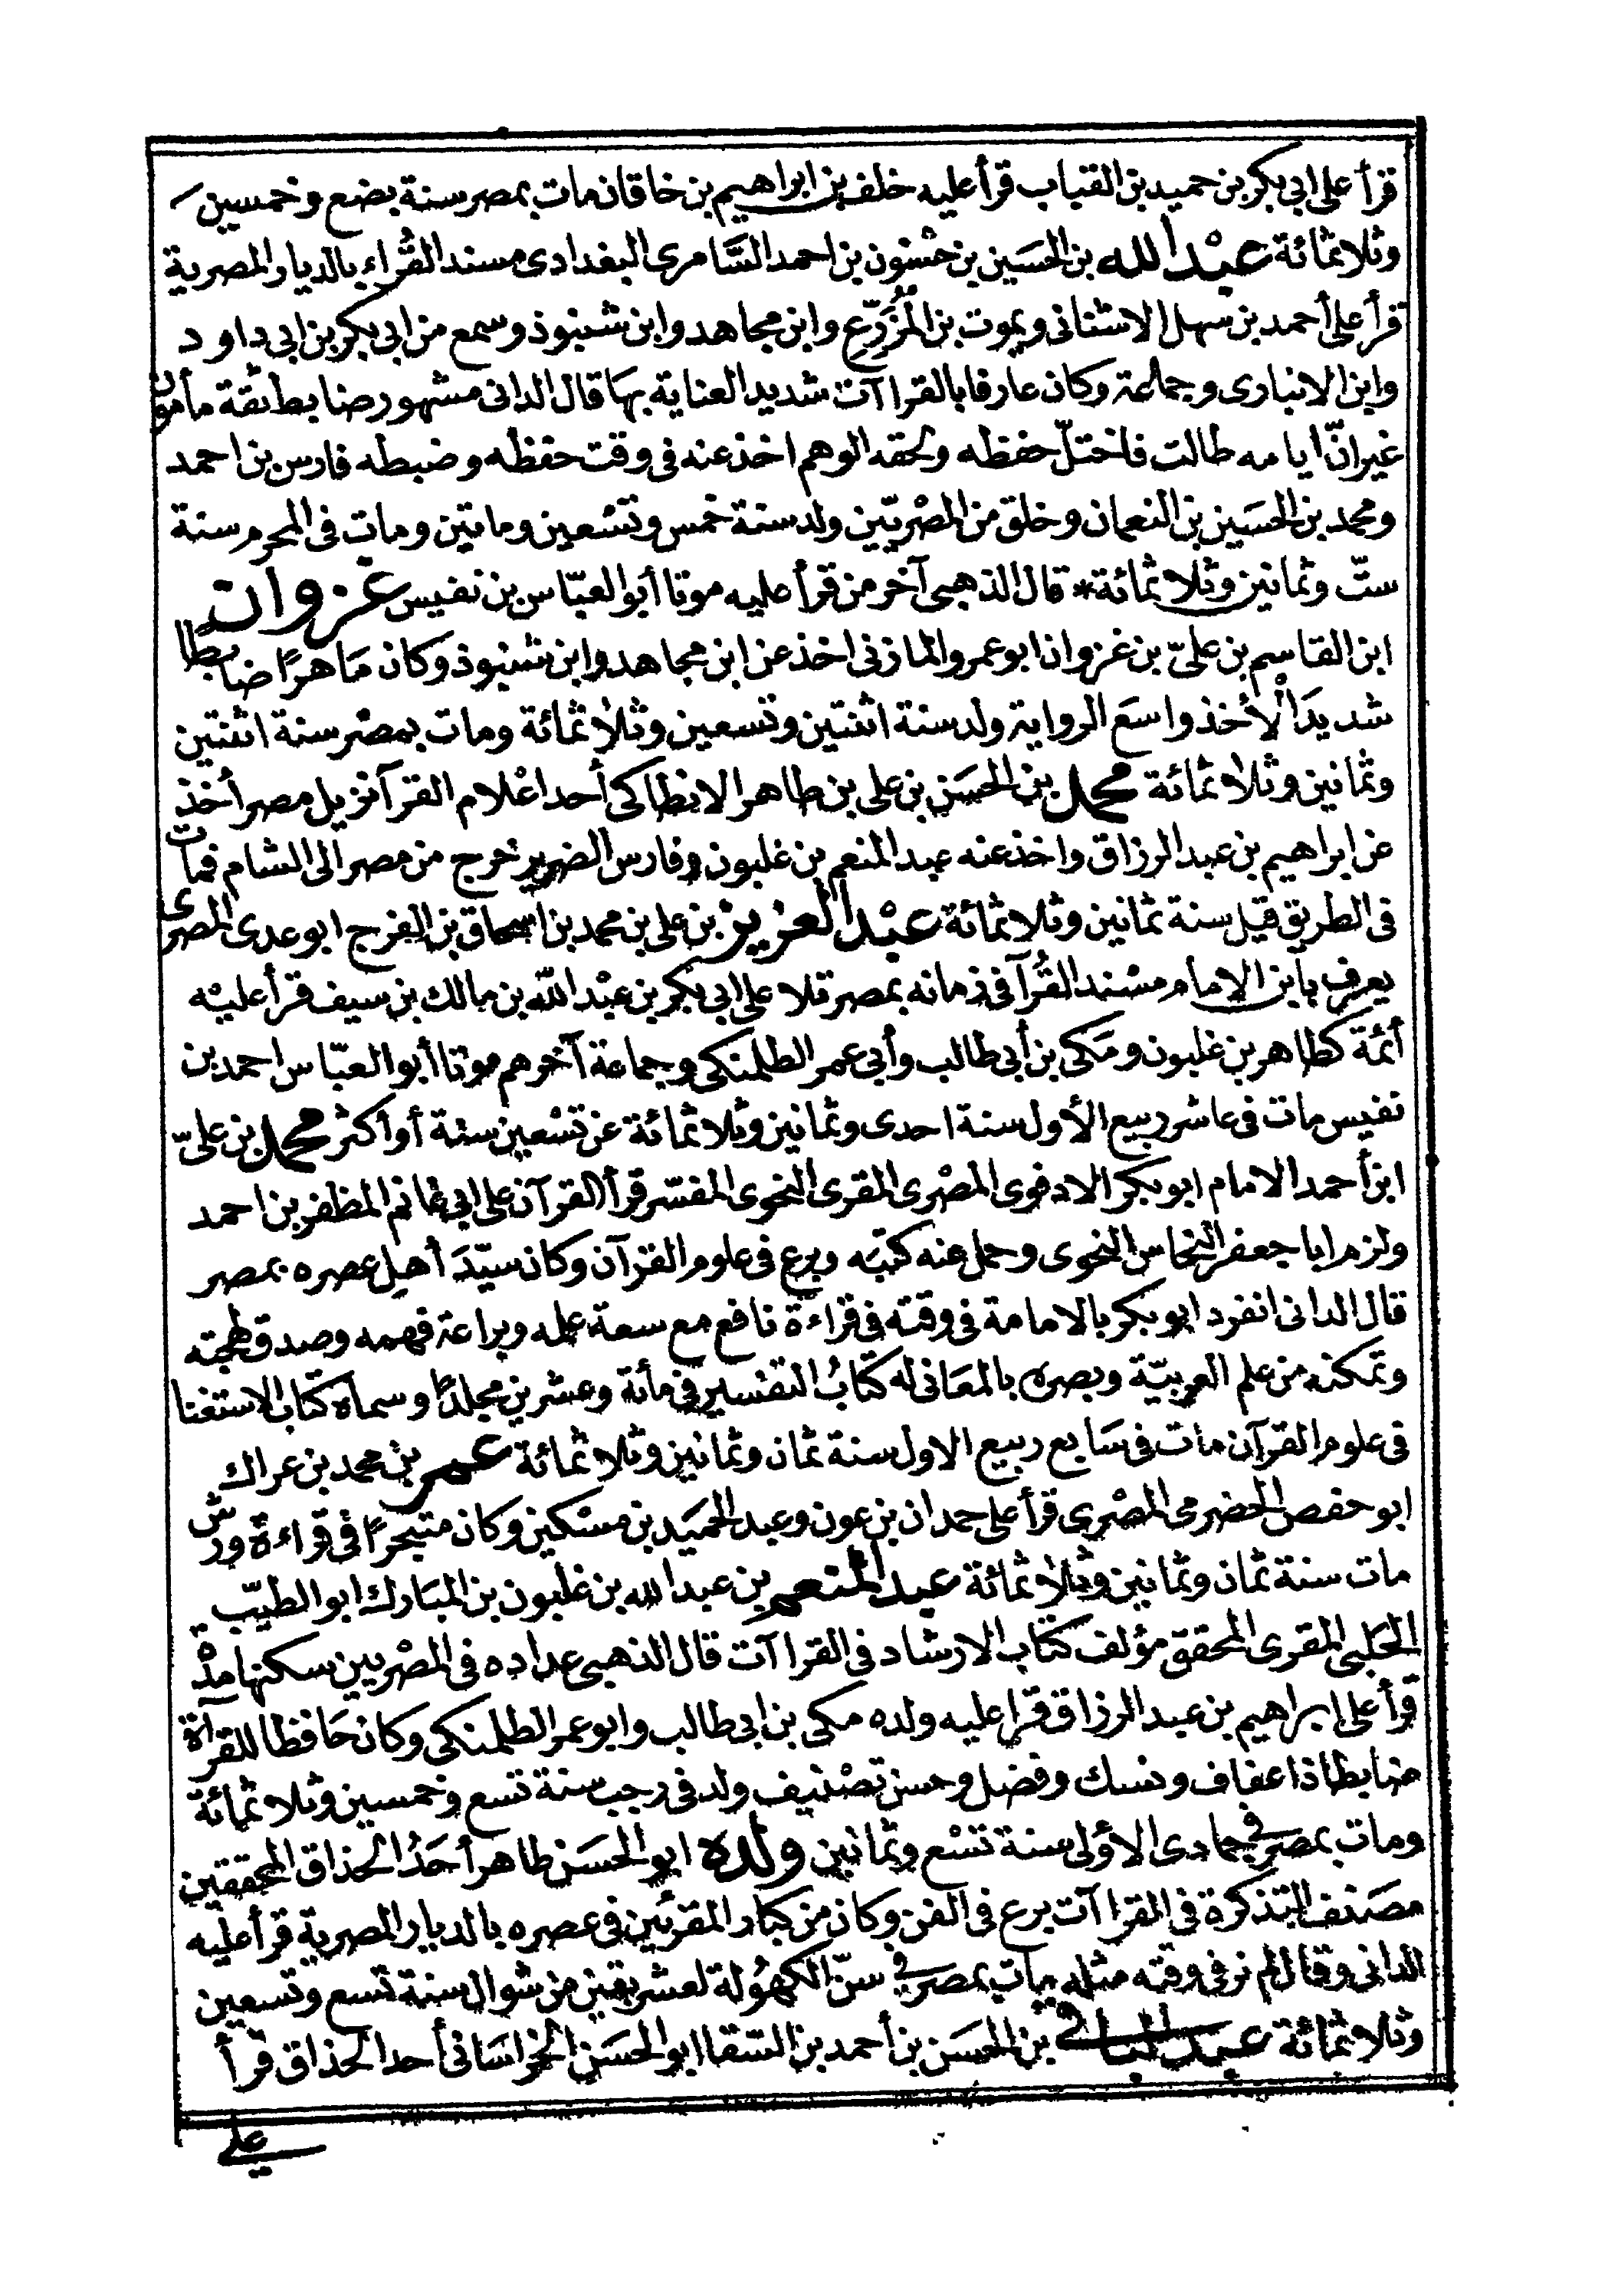 قرأ على ابى بكر بن حميد بن القباب قرأ عليه خلف بن ابراهيم بن خاقان مات بمصر سنة بضع وخمسين
وثلاثمائة عبْد الله بن الحسَين بن حسْنون بن احمد السَّامرى البغدادى مسند القُراء بالديار المصرية
قرأ على أحمد بن سهل الاشنانى ويموت بن المُزَرّع وابن مجاهد وابن شنبوذ وسمع من ابى بكر بن ابى داود
وابن الانبارى وجماعة وكان عارفا بالقراآت شديد العناية بها قال الدانى مشهور ضابط ثقة مأمون
غير انّ ايامه طالت فاختلّ حفظه ولحقه الوهم اخذ عنه فى وقت حفظه وضبطه فارس بن احمد
ومحمد بن الحسَين بن النعمان وخلق من المصْريّين ولد سنة خمس وتسْعين وماتين ومات فى المحرم سنة
ستّ وثمانين وثلاثمائة * قال الذهبى آخر من قرأ عليه موتا أبو العبّاس بن نفيس غزوان
ابن القاسم بن علىّ بن غزوان ابو عمرو المازنى اخذ عن ابن مجاهد وابن شنبوذ وكان مَاهرًا ضابطًا
شديدَ الأخذ واسعَ الرواية ولد سنة اثنتين وتسعين وثلاثمائة ومات بمصْر سنة اثنتين
وثمانين وثلاثمائة محمد بن الحسَن بن على بن طاهر الانطاكى أحد اعْلام القرآ نزيل مصر أخذ
عن ابراهيم بن عبد الرزاق واخذ عنه عبد المنعم بن غلبون وفارس الضرير خرج من مصر الى الشام فمات
فى الطريق قبل سنة ثمانين وثلاثمائة عبْد العزيز بن على بن محمد بن اسحاق بن الفرج ابو عدى المصرى
يعرف بابن الامام مسْند القُرآ فى زمانه بمصر تلا على ابى بكر بن عبْد الله بن مالك بن سيف قرأ عليْه
أئمة كطاهر بن غلبون ومَكى بن أبى طالب وأبى عمر الطلمنكى وجماعة آخرهم موتا أبو العبّاس احمد بن
نفيس مات فى عاشر ربيع الأول سنة احدى وثمانين وثلاثمائة عن تسْعين سنة أو أكثر محمد بن علىّ
ابن أحمد الامام ابو بكر الادفوى المصْرى المقرى النحوى المفسّر قرأ القرآن على ابى غانم المظفر بن احمد
ولزم ابا جعفر النحاس النحوى وحمل عنه كتبَه وبرع فى علوم القرآن وكان سيّدَ أهل عصره بمصر
قال الدانى انفرد ابو بكر بالامامة فى وقته فى قراءة نافع مع سعة علمه وبراعة فهمه وصدق لهجته
وتمكنه من علم العربيّة وبصره بالمعَانى له كتَابُ التفسير فى مأة وعشرين مجلدًا وسماه كتاب الاستغنا
فى علوم القرآن مات فى سَابع ربيع الاول سنة ثمان وثمانين وثلاثمائة عمر بن محمد بن عراك
ابو حفص الحضرمى المصْرى قرأ على حمدان بن عون وعبد الحميَد بن مسْكين وكان متبحرًا فى قراءة ورش
مات سنة ثمان وثمانين وثلاثمائة عبد المنعم بن عبد الله بن غلبون بن المبَارك ابو الطيّب
الحَلبى المقرى المحقق مؤلف كتاب الارشاد فى القراآت قال الذهبى عداده فى المصْريين سكنها مدّة
قرأ على ابراهيم بن عبد الرزاق قرا عليه ولده مكى بن ابى طالب وابو عمر الطلمنكى وكان حَافظا للقراة
ضابطا ذا عفاف ونسك وفضل وحسن تصْنيف ولد فى رجب سنة تسع وخمسين وثلاثمائة
ومات بمصر فى جمادى الاؤلى سنة تسْع وثمانين ولده ابو الحسَن طاهر أحَدُ الحذاق المحققين
مصَنف التذكرة فى القراآت برع فى الفن وكان من كبار المقرئين فى عصره بالديار المصرية قرأ عليه
الدانى وقال لم نر فى وقته مثله مات بمصر فى سنّ الكهُولة لعشر بقين من شوال سنة تسع وتسعين
وثلاثمائة عبد الباقى بن الحسَن بن أحمد بن السّقا ابو الحسَن الخراسَانى أحد الحذاق قرأ
على